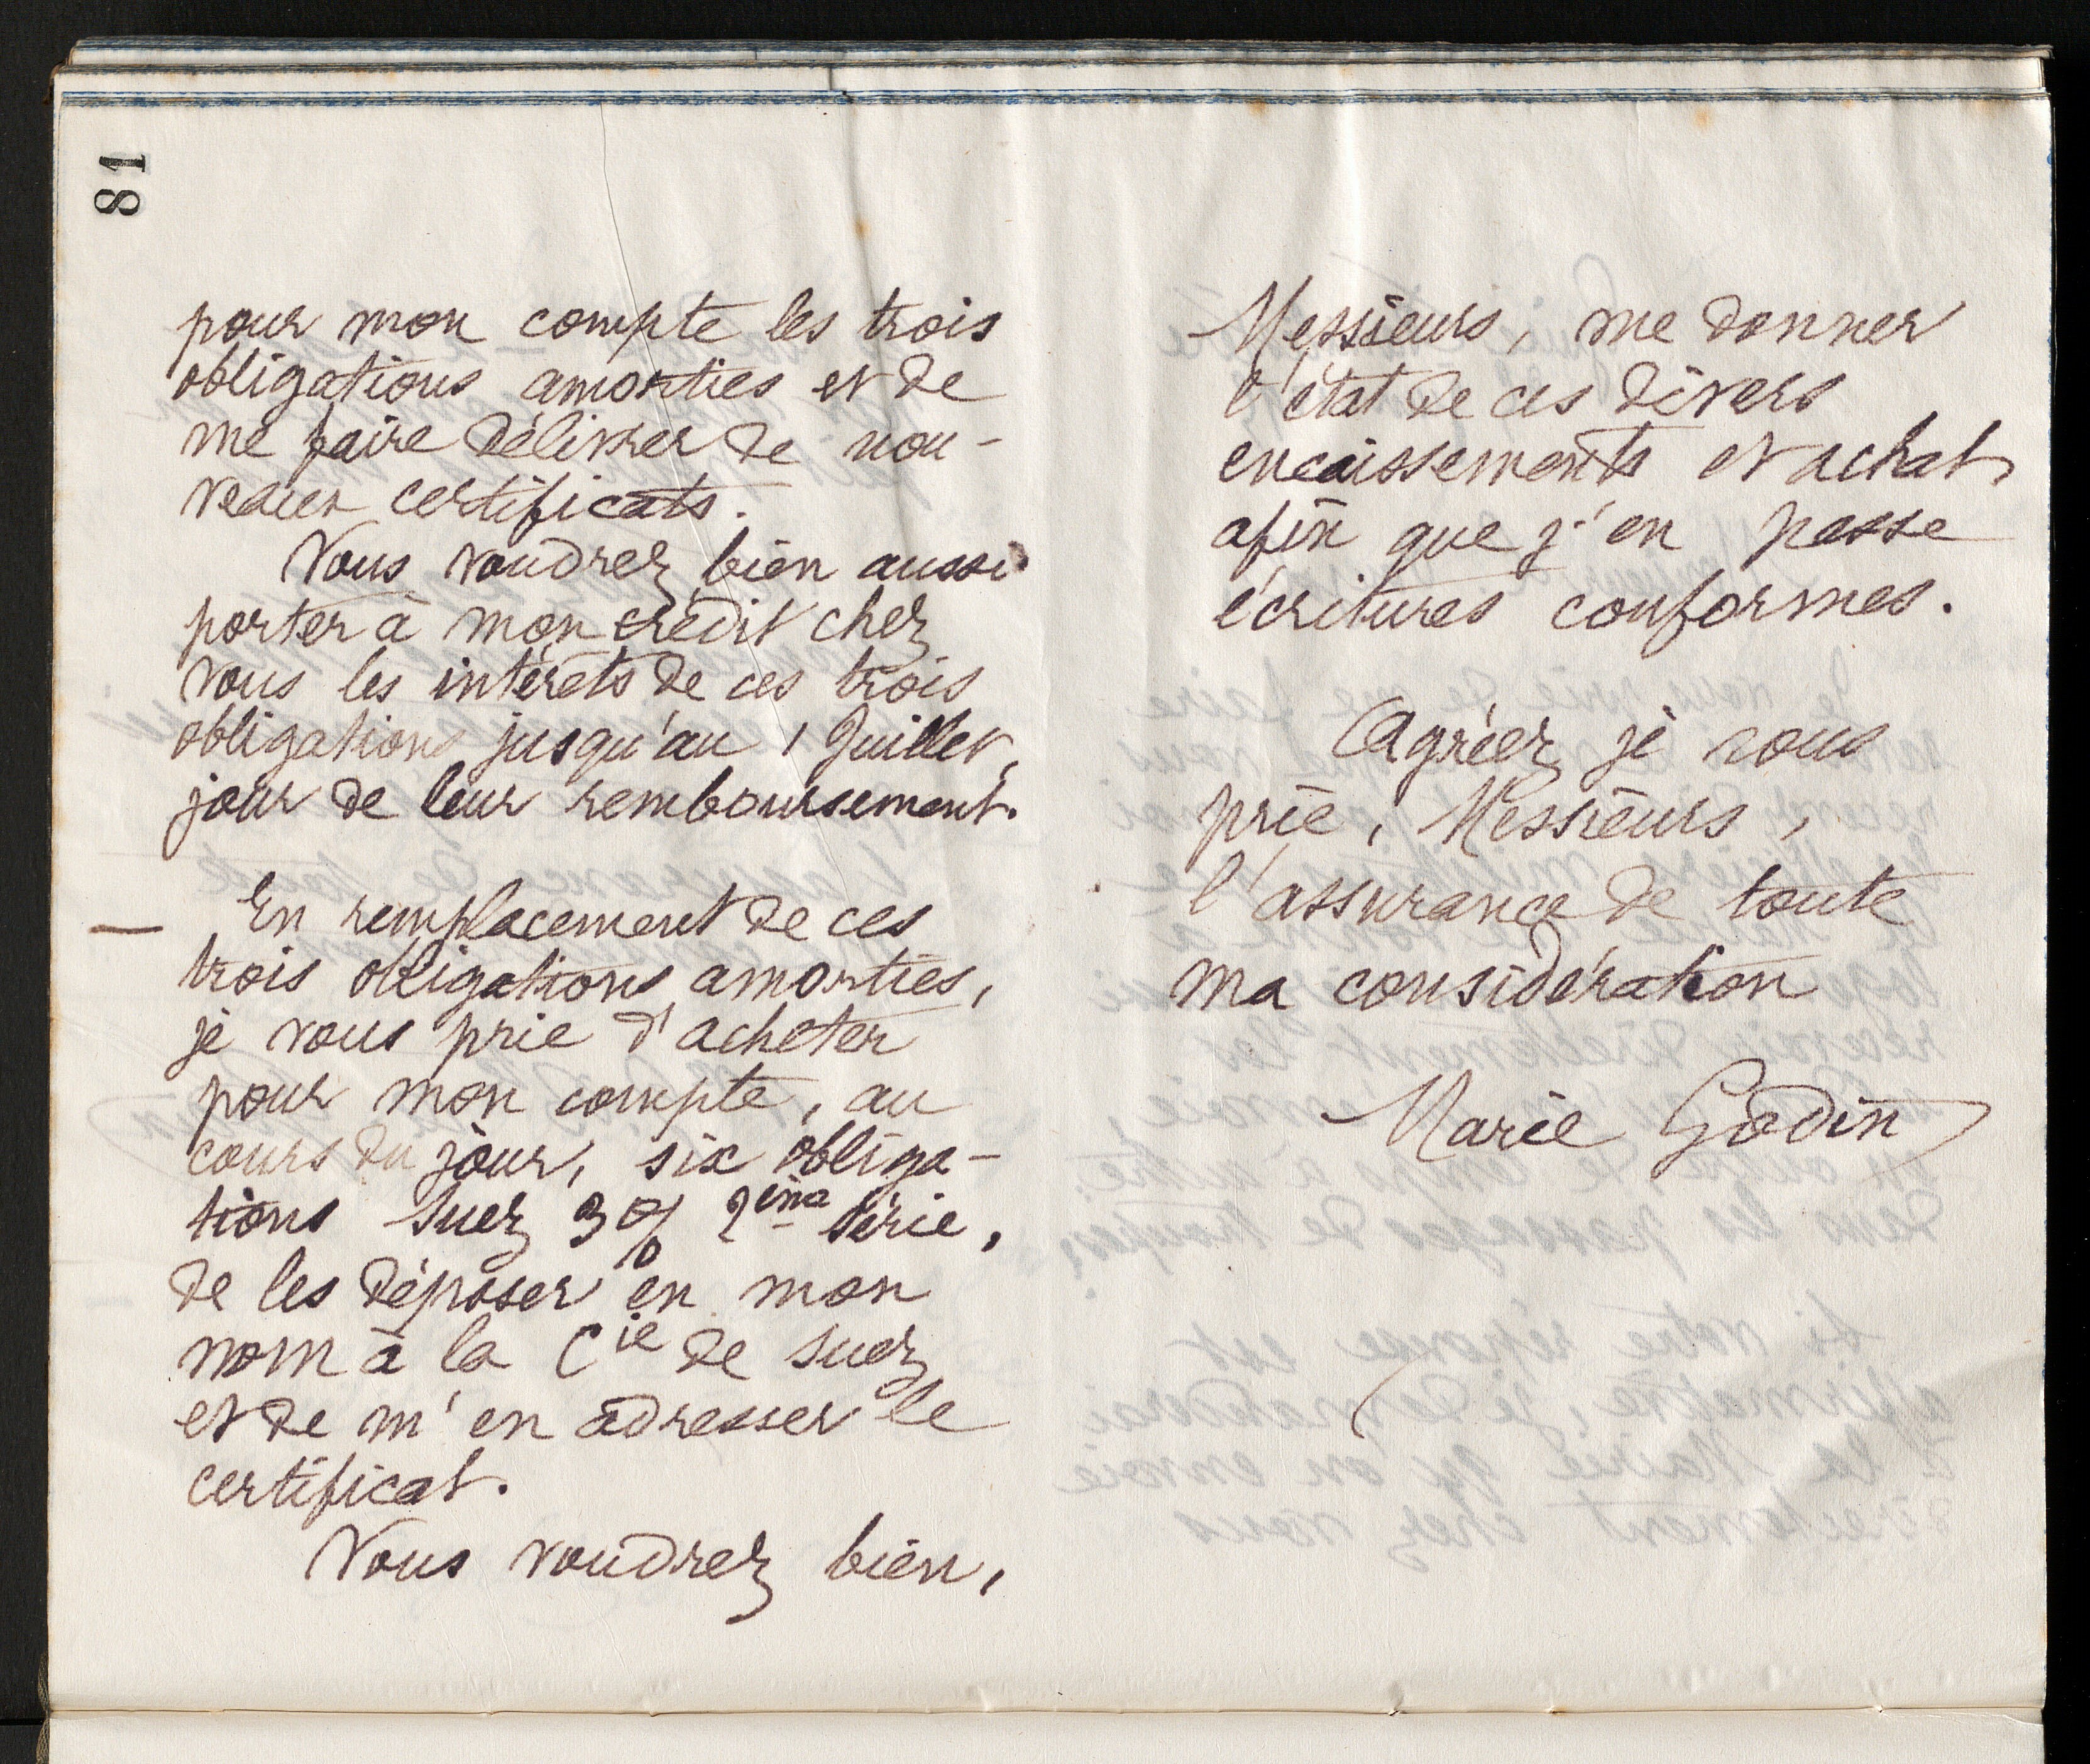 81
pour mon compte les trois
obligations amorties et de
me faire délivrer de nou-
veaux certificats.
Vous voudrez bien aussi
porter à mon crédit chez
vous les intérêts de ces trois
obligations jusqu'au 1 Juillet,
jour de leur remboursement.
— En remplacement de ces
trois obligations amorties,
je vous prie d'acheter
pour mon compte, au
cours du jour, six obliga-
tions Suez 3 % 2ème série,
de les déposer en mon
nom à la Cie de Suez
et de m'en adresser le
certificat.
Vous voudrez bien,
Messieurs, me donner
l'état de ces divers
encaissements et achat,
afin que j'en passe
écritures conformes.
Agréez, je vous
prie, Messieurs,
l'assurance de toute
ma considération
Marie Godin